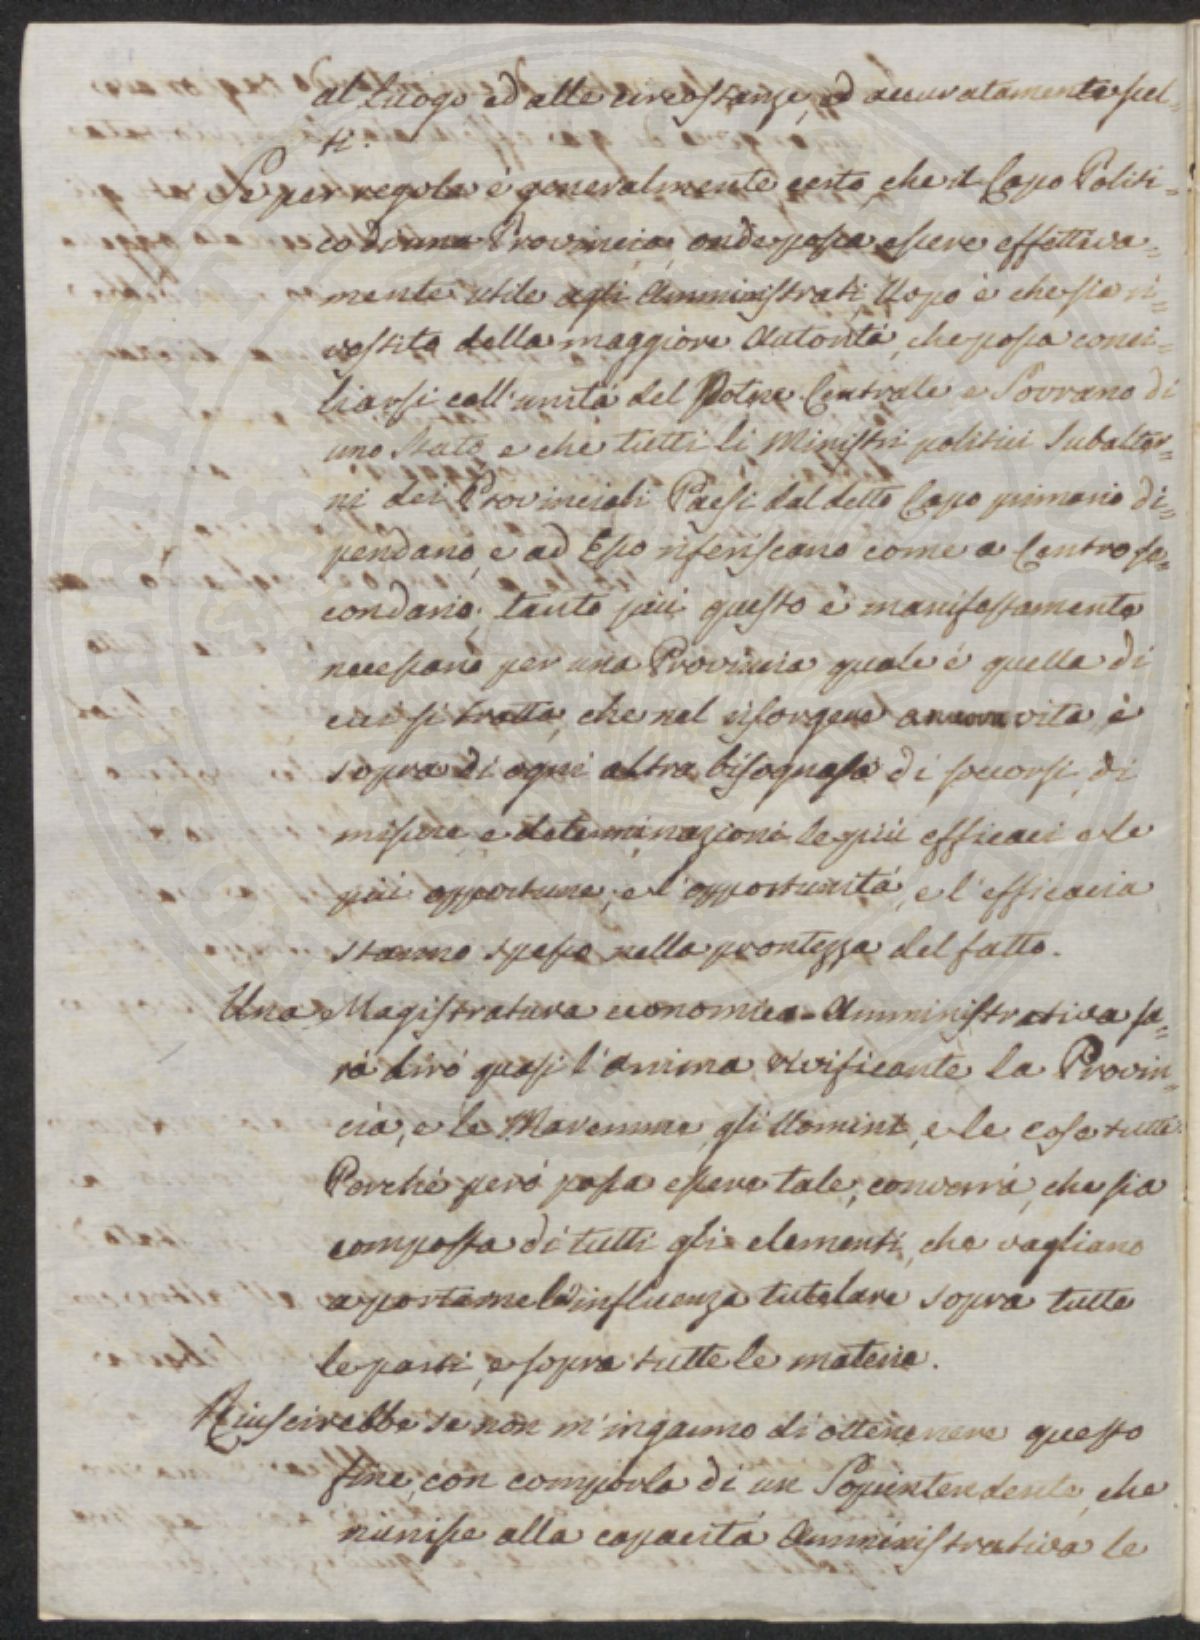 al luogo ed alle circostanze, ed accuratamente scel=
ti.
Se per regola è generalmente certo, che il Capo Politi=
co d'una Provincia, onde possa essere effettiva=
mente utile agli Amministrati, Uopo è che sia ri=
vestito della maggiore Autorità, che possa conci=
liarsi coll'unità del Potere Centrale e Sovrano di
uno Stato, e che tutti li Ministri politici Subalter=
ni dei Provinciali Paesi dal detto Capo primario di=
pendano, e ad Esso riferiscano come a Centro se=
condario; tanto più questo è manifestamente
necessario per una Provincia quale è quella di
cui si tratta, che nel risorgere a nuova vita è
sopra di ogni altra bisognosa di soccorsi, di
misure e determinazioni le più efficaci e le
più opportune, e l'opportunità, e l'efficacia
stanno spesso nella prontezza del fatto.
Una Magistratura economica=Amministrativa sa=
rà dirò quasi l'anima vivificante la Provin=
cia, e le Maremme, gli Uomini, e le cose tutte.
Perchè però possa essere tale, converrà, che sia
composta di tutti gli elementi, che vagliano
a portarne l'influenza tutelare sopra tutte
le parti, e sopra tutte le materie.
Riuscirebbe se non m'inganno di ottenenere questo
fine, con comporla di un Sopuintendente, che
riunisse alla capacità Amministrativa le